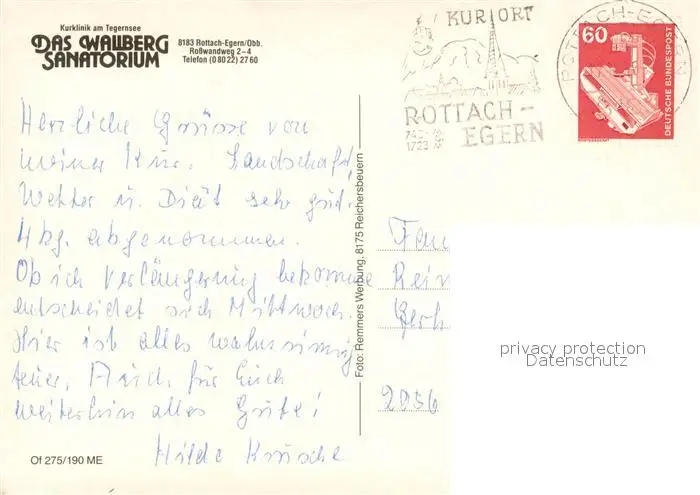 Kurklinik am Tegernsee
DAS WALLBERG
SANATORIUM
8183 Rottach-Egern/Obb.
Roßwandweg 2–4
Telefon (08022) 2760
KURORT
ROTTACH-
EGERN
740 m
1723 m
ROTTACH-EGERN
60
DEUTSCHE BUNDESPOST
Herzliche Grüsse von
meiner Kur. Landschaft,
Wetter u. Diät sehr gut.
4 kg. abgenommen.
Ob ich Verlängerung bekomme
entscheidet sich Mittwoch.
Hier ist alles wahnsinnig
teuer. Auch für Euch
weiterhin alles Gute!
Hilde
Foto: Remmers Werbung, 8175 Reichersbeuern
Fam
Rein
Gerh
privacy protection
Datenschutz
Of 275/190 ME